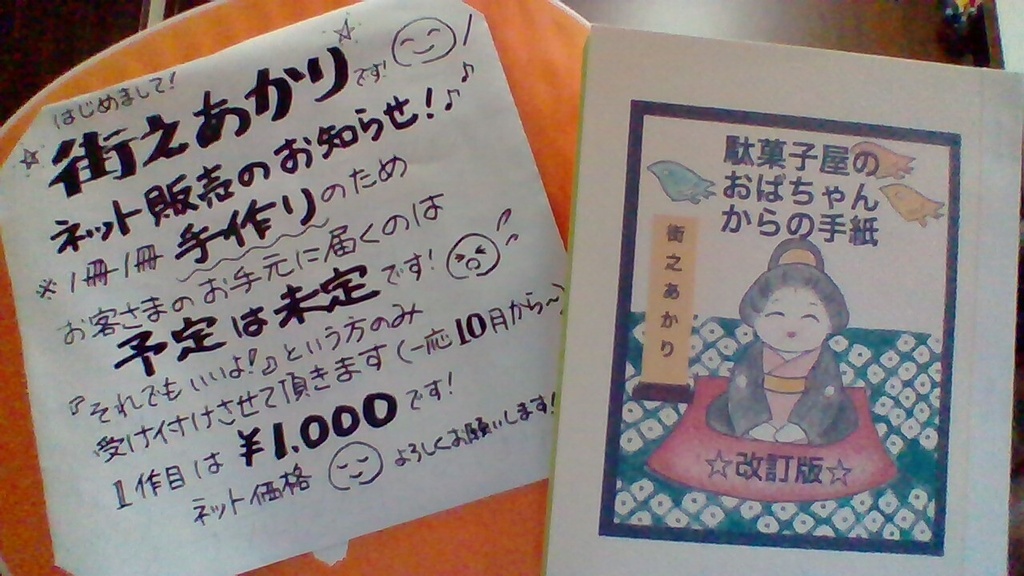 はじめまして!
街えあかりです!
ネット販売のお知らせ!♪♪
※1冊1冊手作りのため
お客さまのお手元に届くのは
予定は未定です!
『それでもいいよ!♪』という方のみ
受け付けさせて頂きます(一応10月から〜)
1作目は¥1.000です!
ネット価格 よろしくお願いします!
駄菓子屋の
おばちゃん
からの手紙
街之あかり
☆改訂版☆